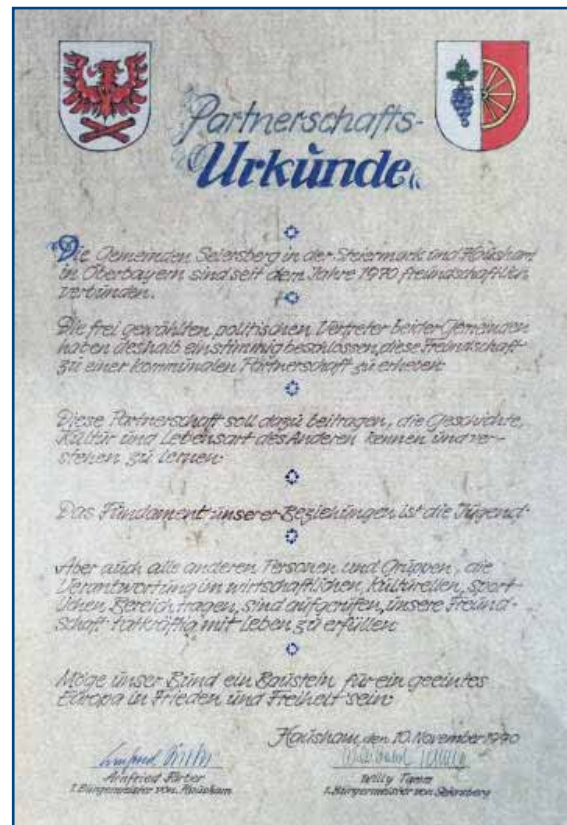 Partnerschafts-
Urkunde
Die Gemeinden Seiersberg in der Steiermark und Hausham
in Oberbayern sind seit dem Jahre 1970 freundschaftlich
verbunden.
Die frei gewählten politischen Vertreter beider Gemeinden
haben deshalb einstimmig beschlossen, diese Freundschaft
zu einer kommunalen Partnerschaft zu erheben.
Diese Partnerschaft soll dazu beitragen, die Geschichte,
Kultur und Lebensart des Anderen kennen und ver-
stehen zu lernen.
Das Fundament unserer Beziehungen ist die Jugend.
Aber auch alle anderen Personen und Gruppen, die
Verantwortung im wirtschaftlichen, kulturellen, sport-
lichen Bereich tragen, sind aufgerufen, unsere Freund-
schaft tatkräftig mit Leben zu erfüllen.
Möge unser Bund ein Baustein für ein geeintes
Europa in Frieden und Freiheit sein.
Hausham, den 10. November 1990
Arnfried Färber
1. Bürgermeister von Hausham
Willy
1. Bürgermeister von Seiersberg